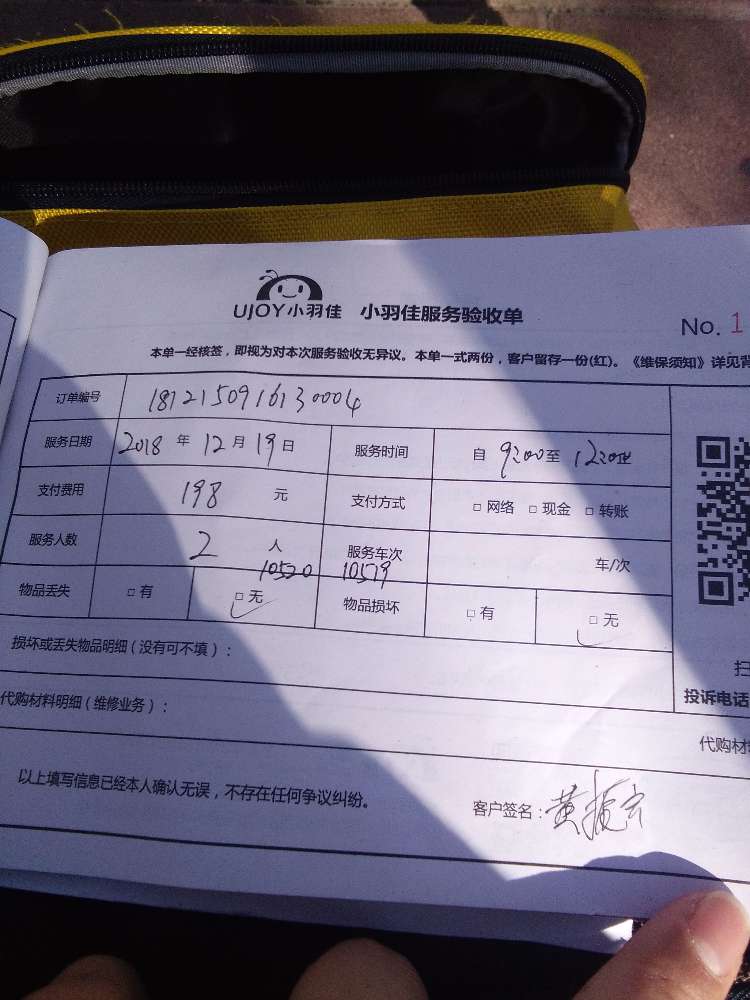 UJOY小羽佳 小羽佳服务验收单
No. 1
本单一经核签，即视为对本次服务验收无异议。本单一式两份，客户留存一份(红)。《维保须知》详见背
订单编号 1812150916130004
服务日期 2018 年 12 月 19 日 服务时间 自 9:00 至 12:00
支付费用 198 元 支付方式 □ 网络 □ 现金 □ 转账
服务人数 2 人 服务车次 车/次
10520 10579
物品丢失 □ 有 □ 无 物品损坏 □ 有 □ 无
损坏或丢失物品明细（没有可不填）：
扫
投诉电话
代购材料明细（维修业务）：
代购材
以上填写信息已经本人确认无误，不存在任何争议纠纷。
客户签名：黄振宏